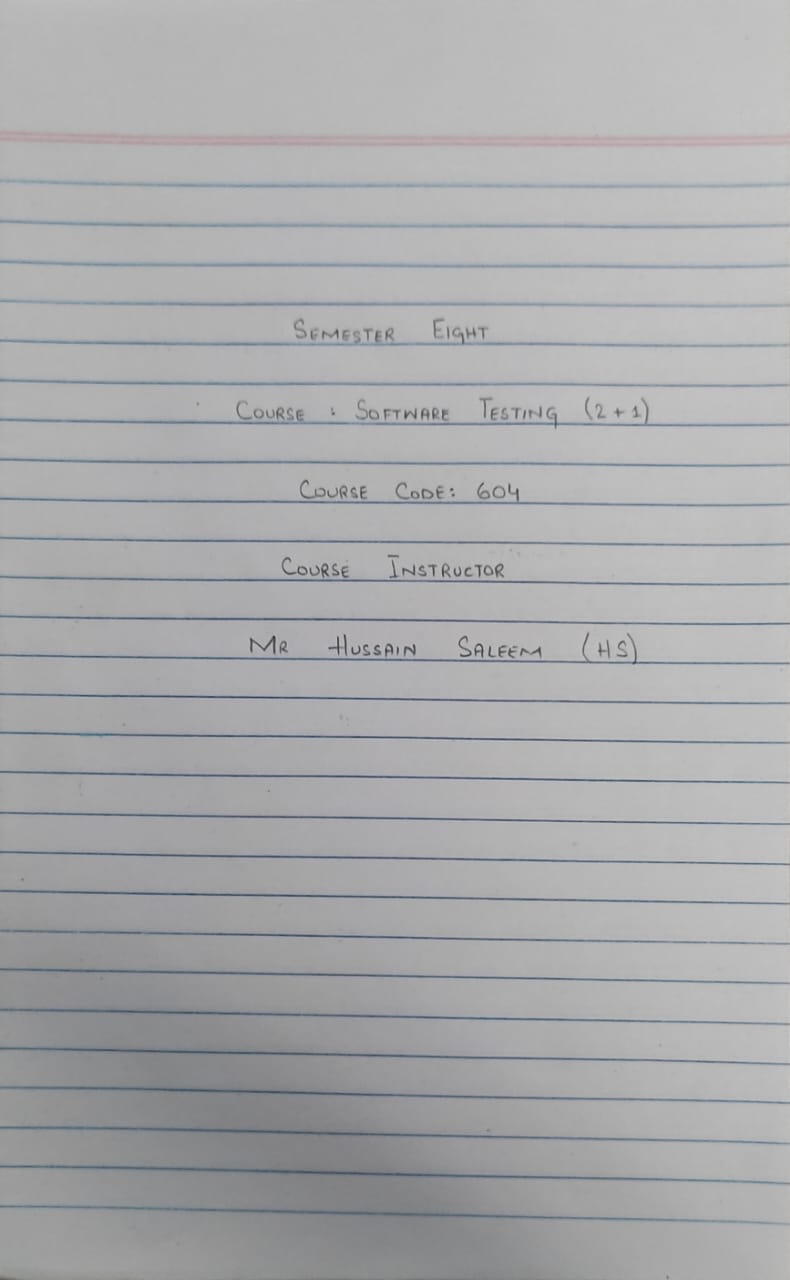 SEMESTER EIGHT
COURSE : SOFTWARE TESTING (2+1)
COURSE CODE: 604
COURSE INSTRUCTOR
MR HUSSAIN SALEEM (HS)